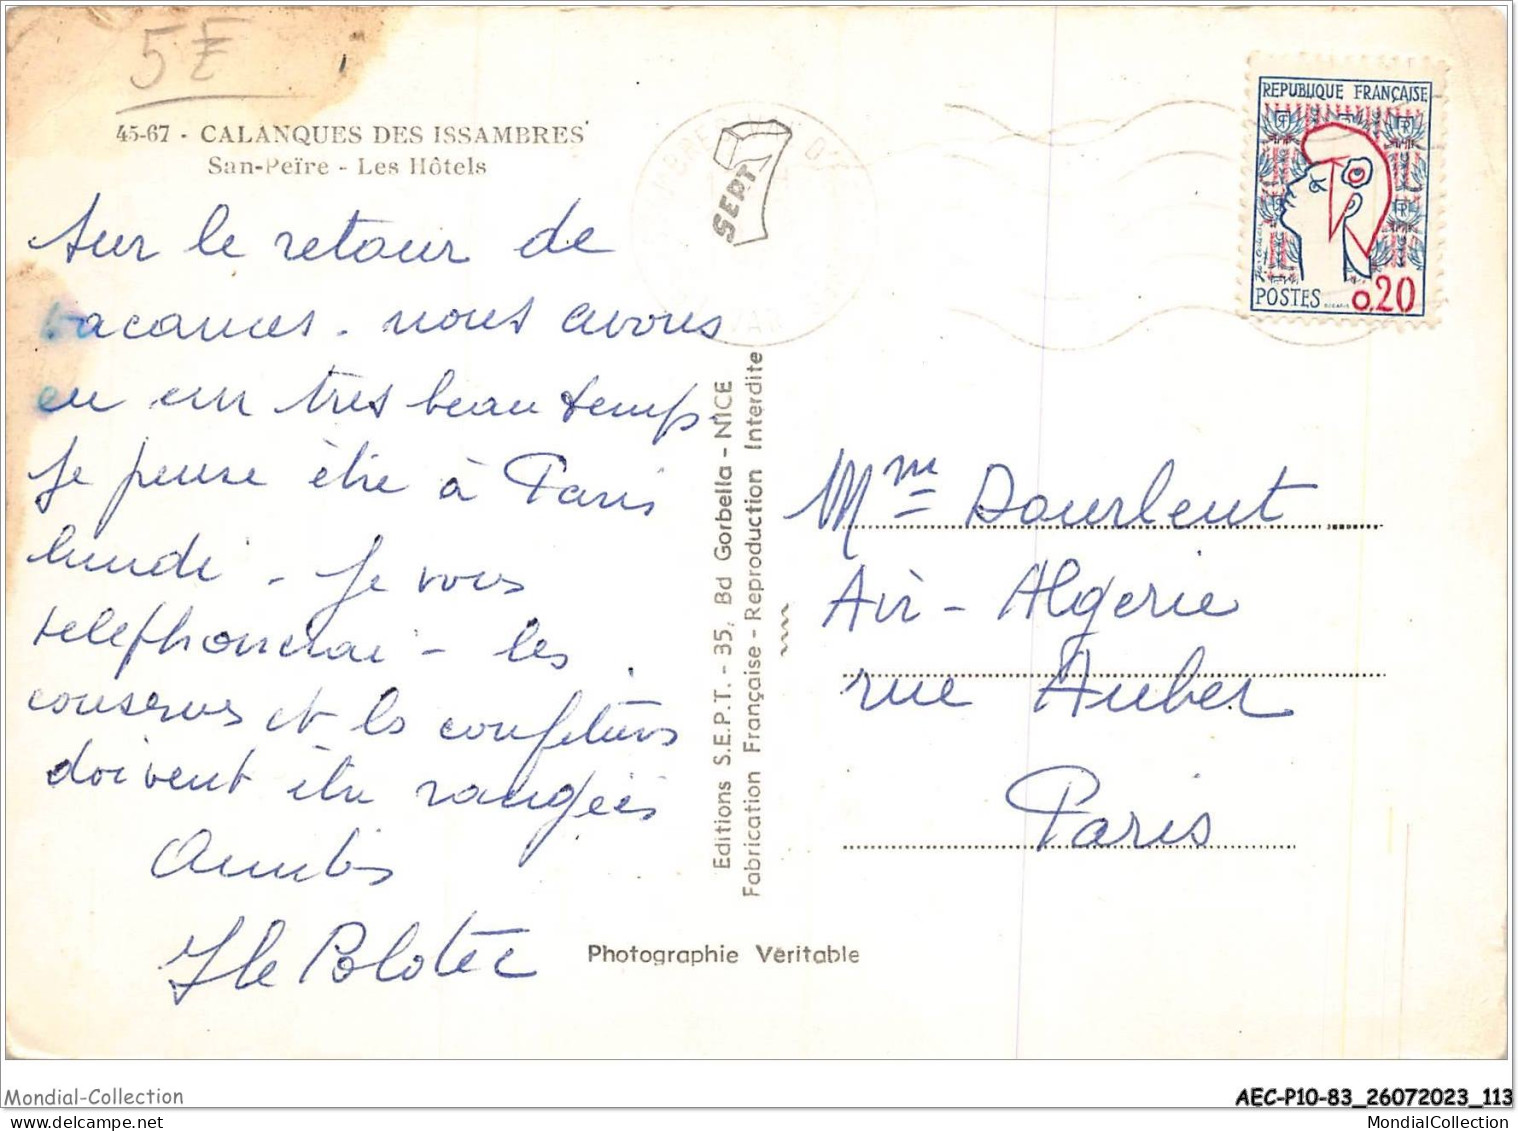 5 F
45-67 - CALANQUES DES ISSAMBRES
San-Peïre - Les Hôtels
Sur le retour de
vacances. nous avons
eu un très beau temps.
Je pense être à Paris
lundi - Je vous
telephonerai - les
conserves et les confitures
doivent être rangées
Amitiés
SEPT
VAR
Editions S.E.P.T. - 35, Bd Gorbella - NICE
Fabrication Française - Reproduction Interdite
Photographie Véritable
REPUBLIQUE FRANÇAISE
POSTES 0.20
Mme Dourlent
Air - Algerie
rue Auber
Paris
Mondial-Collection
AEC-P10-83_26072023_113
MondialCollection